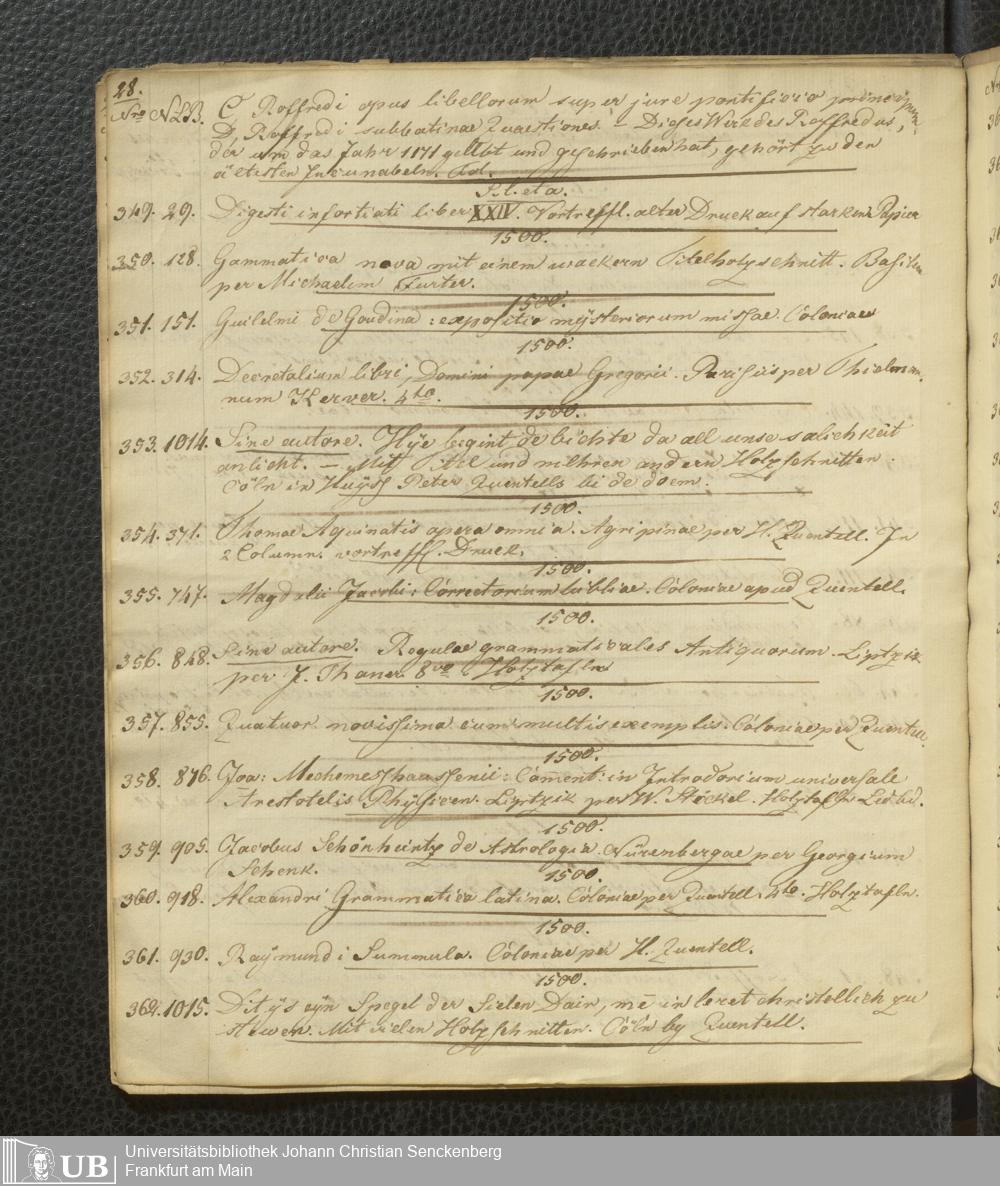 28.
Nro N.L.B. C, Roffredi opus libellorum super jure pontificio
D, Roffredi sabbatinae Quaestiones. – Dieses Werk des Roffredus,
der um das Jahr 1171 gelebt und geschrieben hat, gehört zu den
ältesten Incunabeln. Fol.
S. l. et a.
349. 29. Digesti infortiati liber XXIV. Vortreffl. alter Druck auf starken Papier
1500.
350. 128. Gammatica nova mit einem wackern Titelholzschnitt. Basileae
per Michaelem Furter.
1500.
351. 151. Guilelmi de Goudina: expositio mysteriorum missae. Coloniae
1500.
352. 314. Decretalium libri, Domini papae Gregorii. Parisiis per Thielman-
num Kerver. 4to.
1500.
353. 1014. Sine autore. Hÿe begint de bichte da all unse salichkeit
anlicht. – Mit Titel und mehren andern Holzschnitten.
Cöln in Huÿss Peter Quentells bi de doem.
1500.
354. 371. Thomae Aquinatis opera omnia. Agripinae per H. Quentell. In
2 Column. vortreffl. Druck.
1500.
355. 747. Magdalii Jacobi: Correctorium bibliae. Coloniae apud Quentell.
1500.
356. 848. Sine autore. Regulae grammaticales Antiquorum. Liptzik
per J. Thaner. 8vo Holztafeln
1500.
357. 855. Quatuor novissima cum multis exemplis. Coloniae per Quentell.
1500.
358. 876. Joa: Mechemeshaussenii: Com̄ent: in Introdorium universale
Arestotelis Phÿsicen. Liptzik per W. Stöckel. Holztafln
1500.
359. 905. Jacobus Schönheintz de Astrologia. Nürenbergae per Georgium
Schenk.
1500.
360. 918. Alexandri Grammatica latina. Coloniae per Quentell. 4to. Holztafln.
1500.
361. 930. Raÿmundi Summula. Coloniae per H. Quentell.
1500.
362. 1015. Dit ÿs eÿn Spegel der Sielen Dair, mē in leret christollich zu
Mit vielen Holzschnitten. Cöln by Quentell.
UB
Universitätsbibliothek Johann Christian Senckenberg
Frankfurt am Main